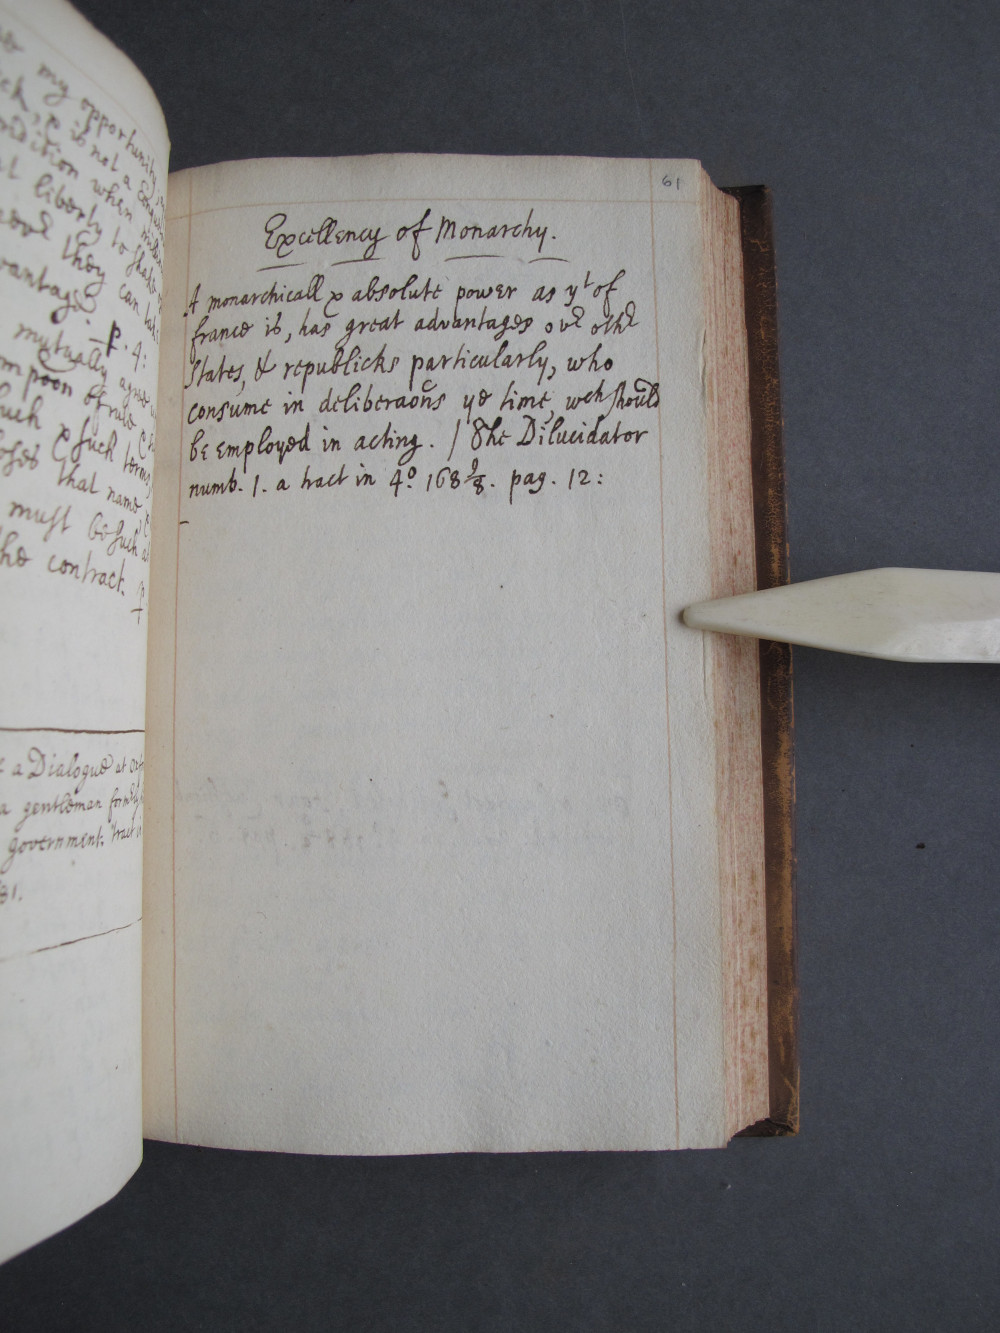 my opportunity
is not a
condition when
liberty to shake
they can
vantage. p. 4:
mutually agree
such & such terms
that name
must be such
the contract.
a Dialogue at
a gentleman
government. tract
81.
61
Excellency of Monarchy.
A monarchicall & absolute power as yt of
france is, has great advantages ovr othr
States, & republicks particularly, who
consume in deliberaōns ye time, wch should
be employed in acting. / The Dilucidator
numb. 1. a tract in 4o. 168 9/8. pag. 12: